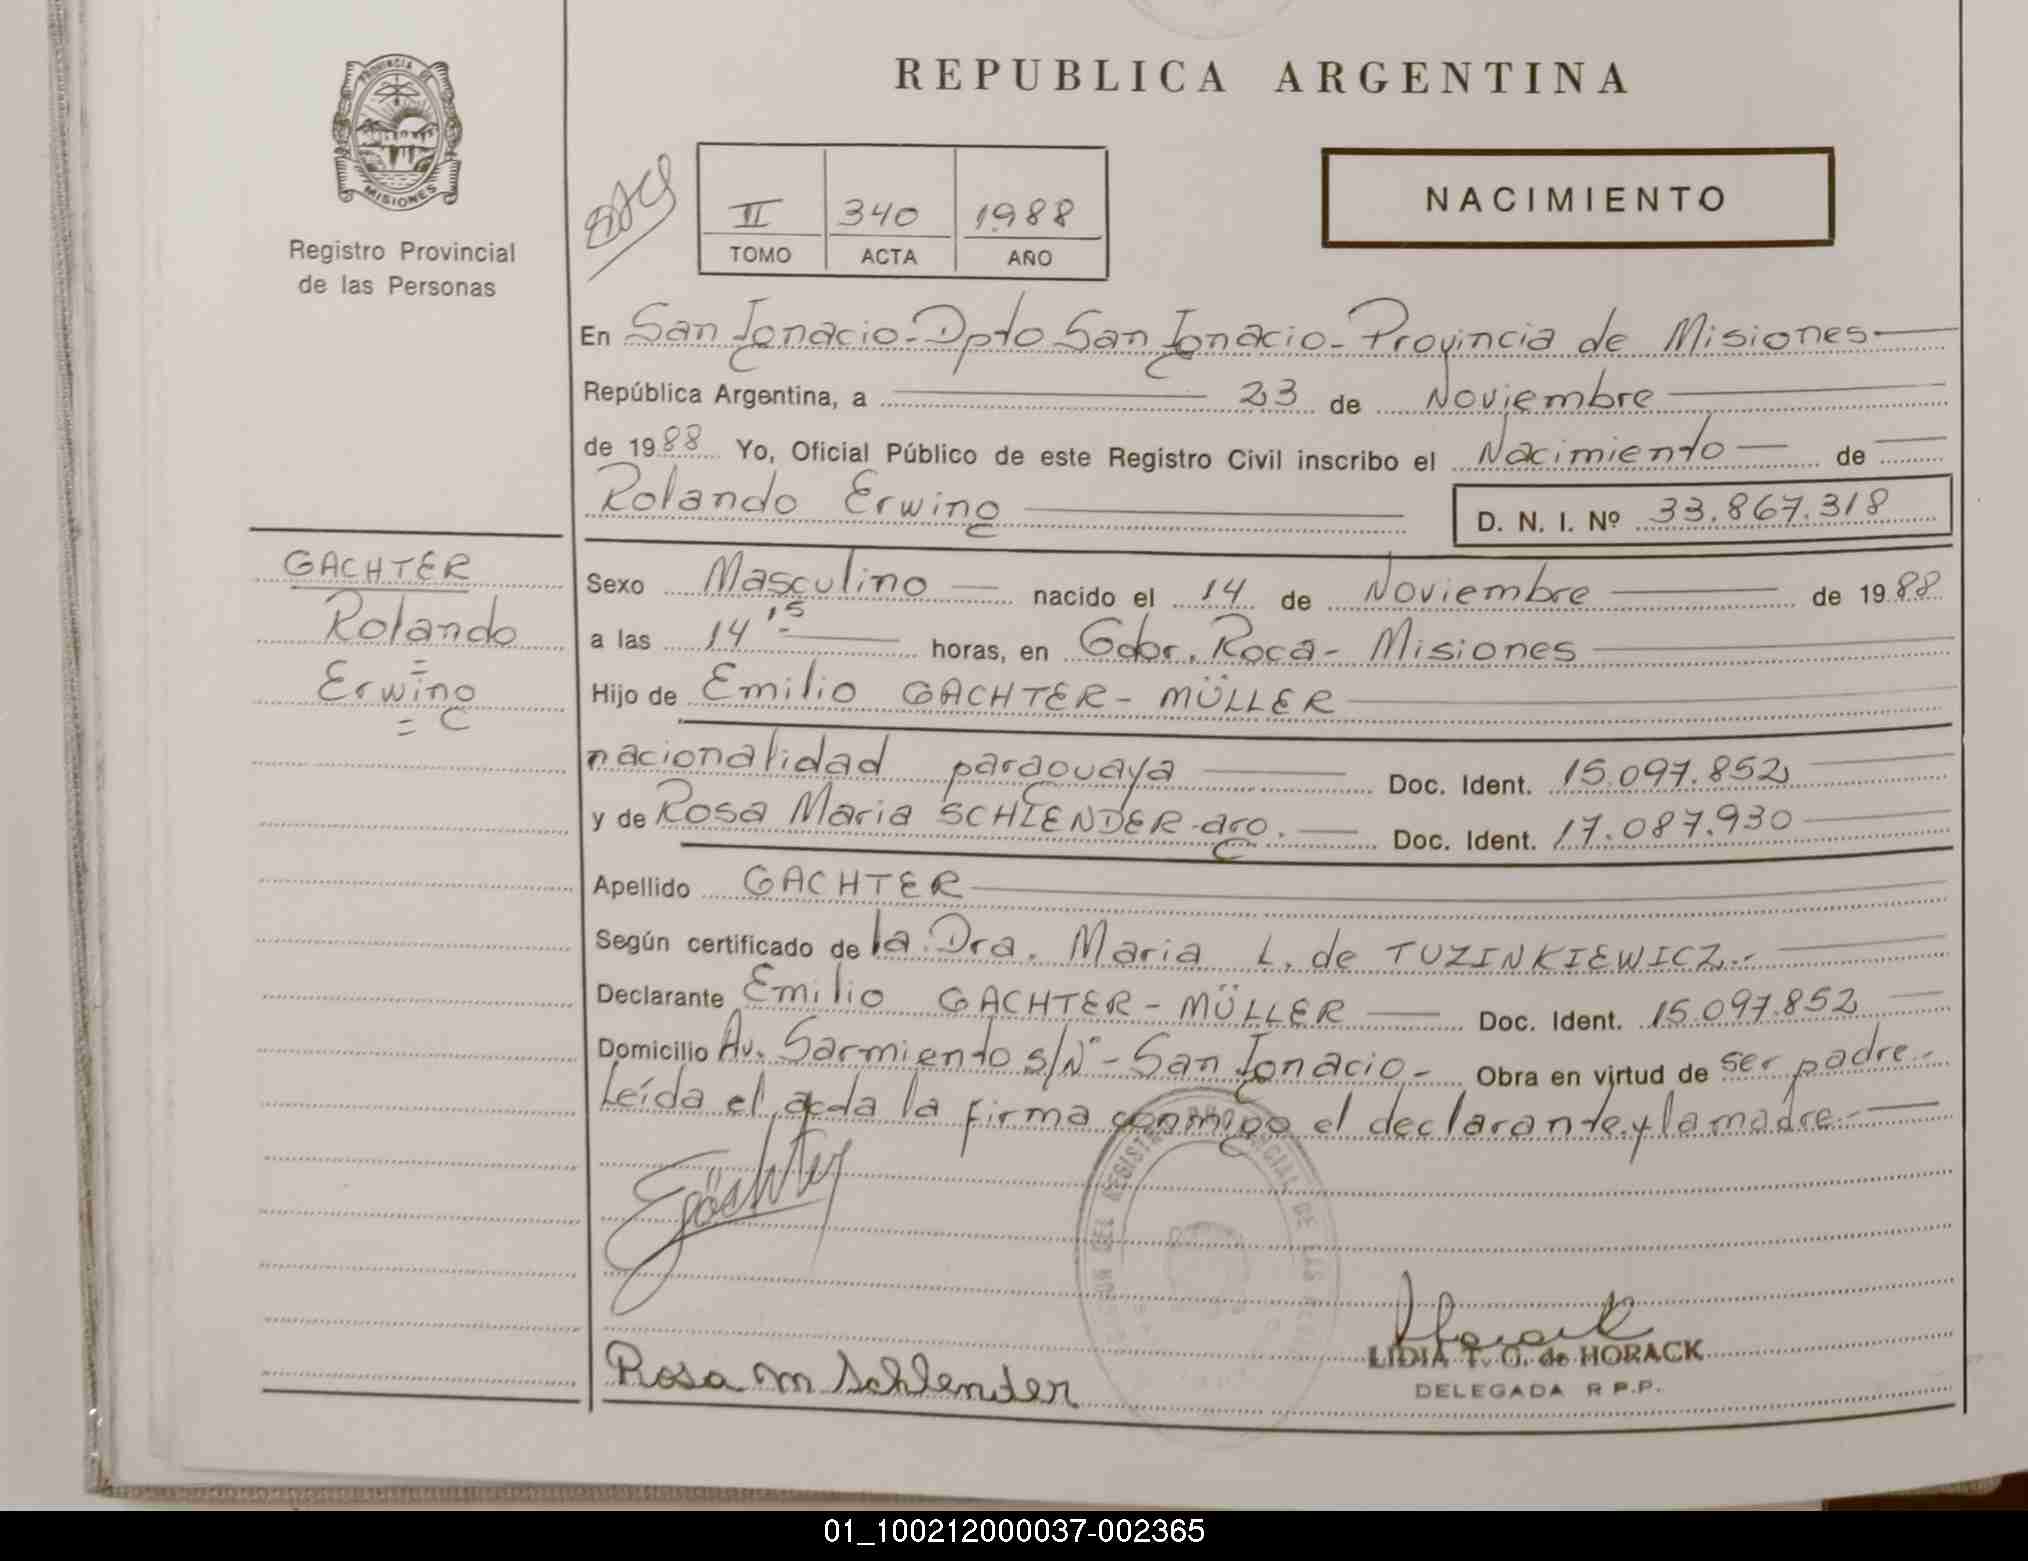 REPUBLICA ARGENTINA
PROVINCIA DE
MISIONES
Registro Provincial
de las Personas
II 340 1988
TOMO ACTA AÑO
NACIMIENTO
En San Ignacio-Dpto San Ignacio-Provincia de Misiones-
República Argentina, a 23 de Noviembre
de 1988 Yo, Oficial Público de este Registro Civil inscribo el Nacimiento de
Rolando Erwing
D. N. I. Nº 33.867.318
GACHTER
Rolando
Erwing
Sexo Masculino nacido el 14 de Noviembre de 1988
a las 14 15 horas, en Gdor. Roca- Misiones
Hijo de Emilio GACHTER-MÜLLER
nacionalidad paraguaya Doc. Ident. 15.097.852
y de Rosa Maria SCHLENDER-arg. Doc. Ident. 17.087.930
Apellido GACHTER
Según certificado de la Dra. Maria L. de TUZINKIEWICZ.-
Declarante Emilio GACHTER-MÜLLER Doc. Ident. 15.097.852
Domicilio Av. Sarmiento s/Nº-San Ignacio.- Obra en virtud de ser padre.-
Leída el acta la firma conmigo el declarante y la madre.-
Rosa M Schlender
LIDIA T. O. de HORACK
DELEGADA R P.P.
01_100212000037-002365